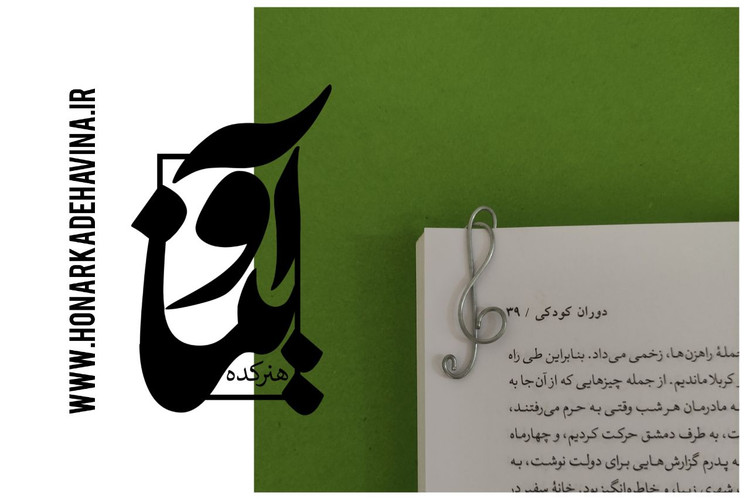 WWW.HONARKADEHAVINA.IR
آوینا
هنرکده
دوران کودکی / ۳۹
جملهٔ راهزن‌ها، زخمی می‌داد. بنابراین طی راه
کربلا ماندیم. از جمله چیزهایی که از آن‌جا به
مادرمان هر شب وقتی به حرم می‌رفتند،
به طرف دمشق حرکت کردیم، و چهارماه
پدرم گزارش‌هایی برای دولت نوشت، به
شهری زیبا، و خاطره‌انگیز بود. خانهٔ سفیر در